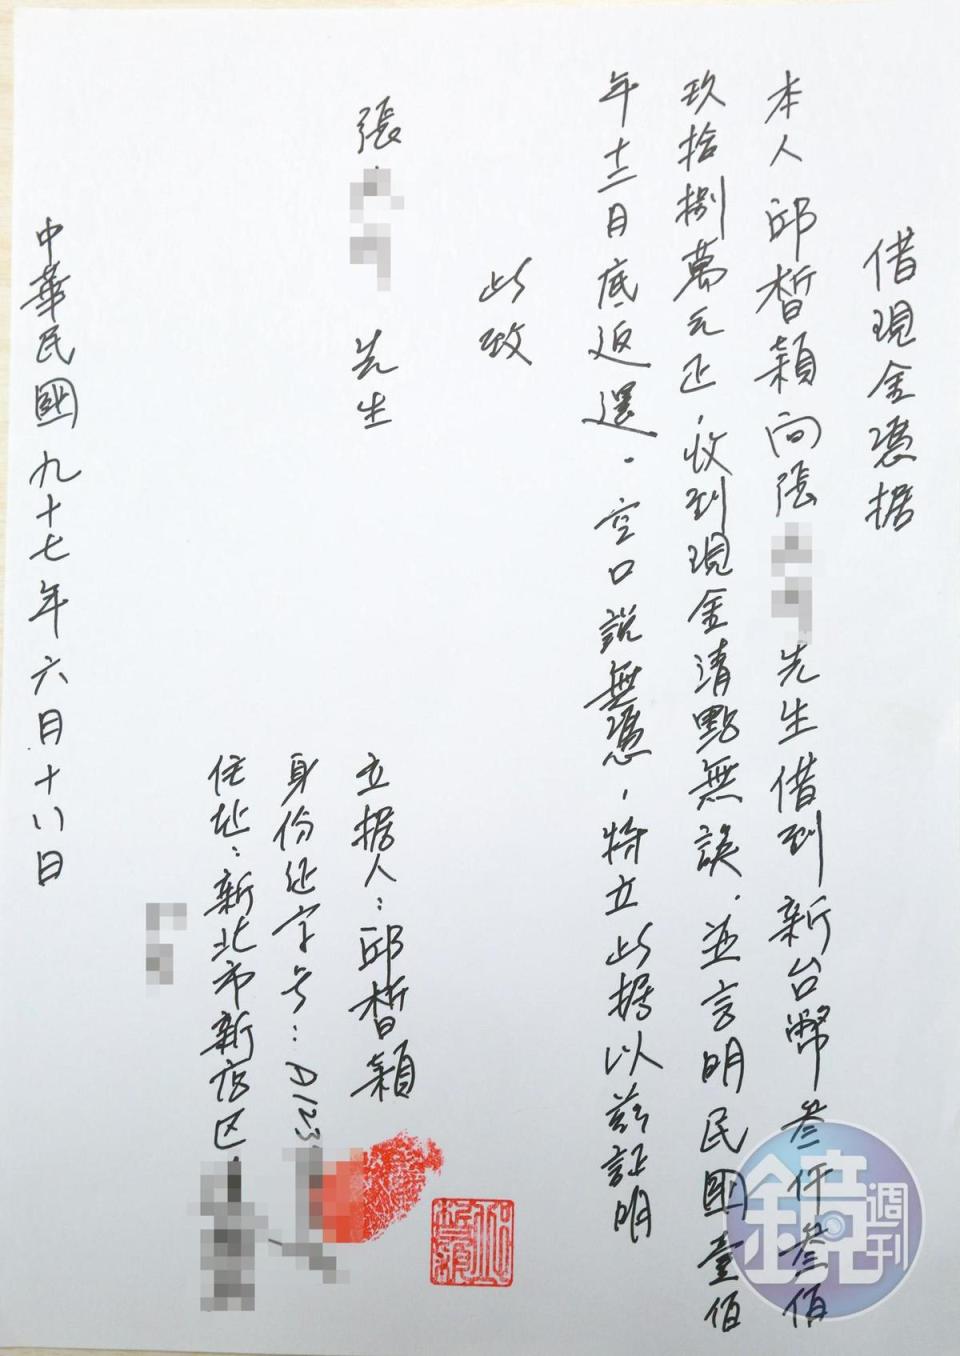 借現金憑据
本人邱晳穎向張 先生借到新台幣叁仟叁佰
玖拾捌萬元正，收到現金清點無誤．並言明民國壹佰
年十二月底返還．空口說無憑，特立此據以茲証明
此致
張 先生
立据人：邱晳穎
身份証字号：A123
住址：新北市新店区
中華民國九十七年六月十八日
鏡週刊